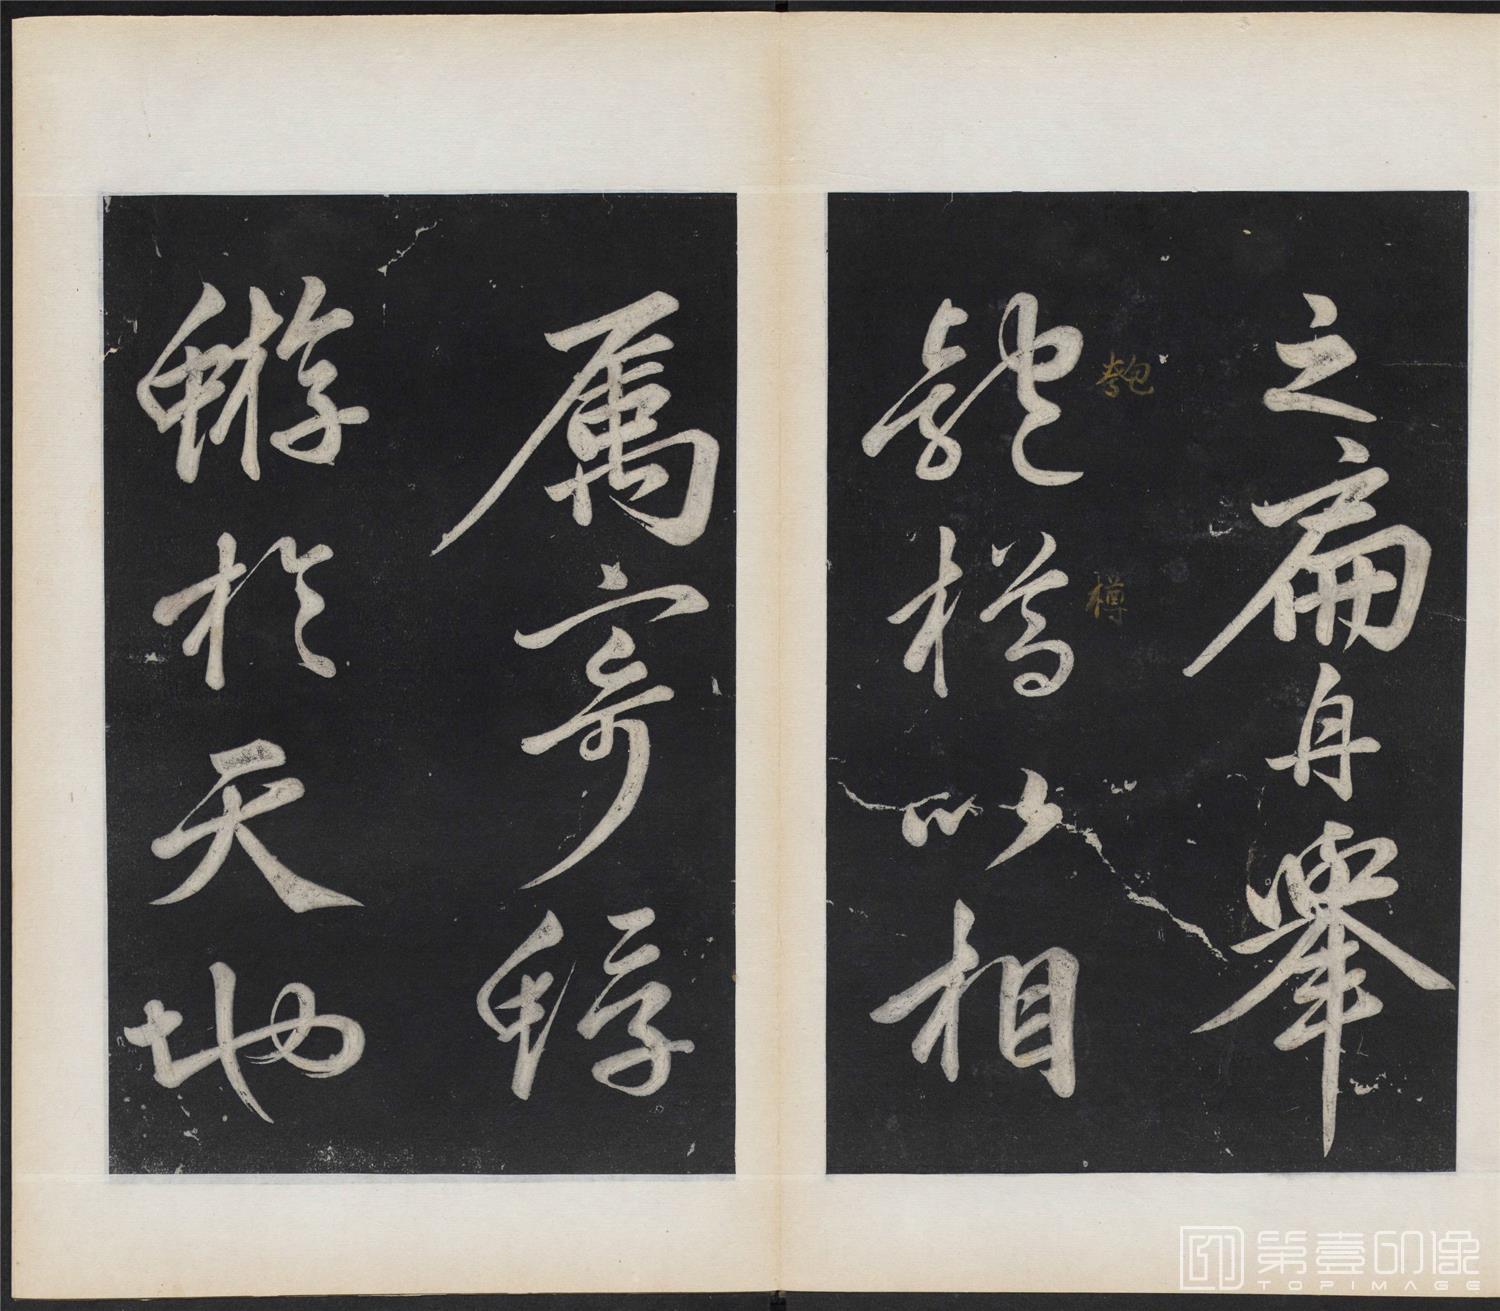 之扁舟舉
匏樽以相
屬寄蜉
蝣於天地
匏
樽
第壹印像
TOPIMAGE